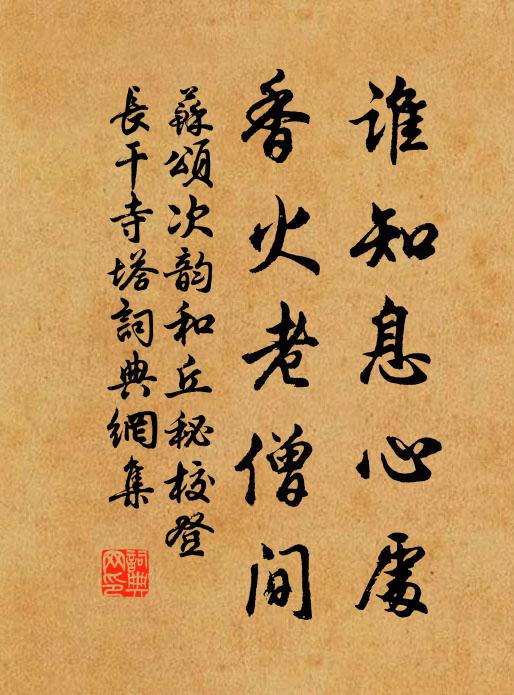 谁知息心處
香火老僧间
蘇頌次韵和丘秘校登
長干寺塔詞典網集
詞典
网印